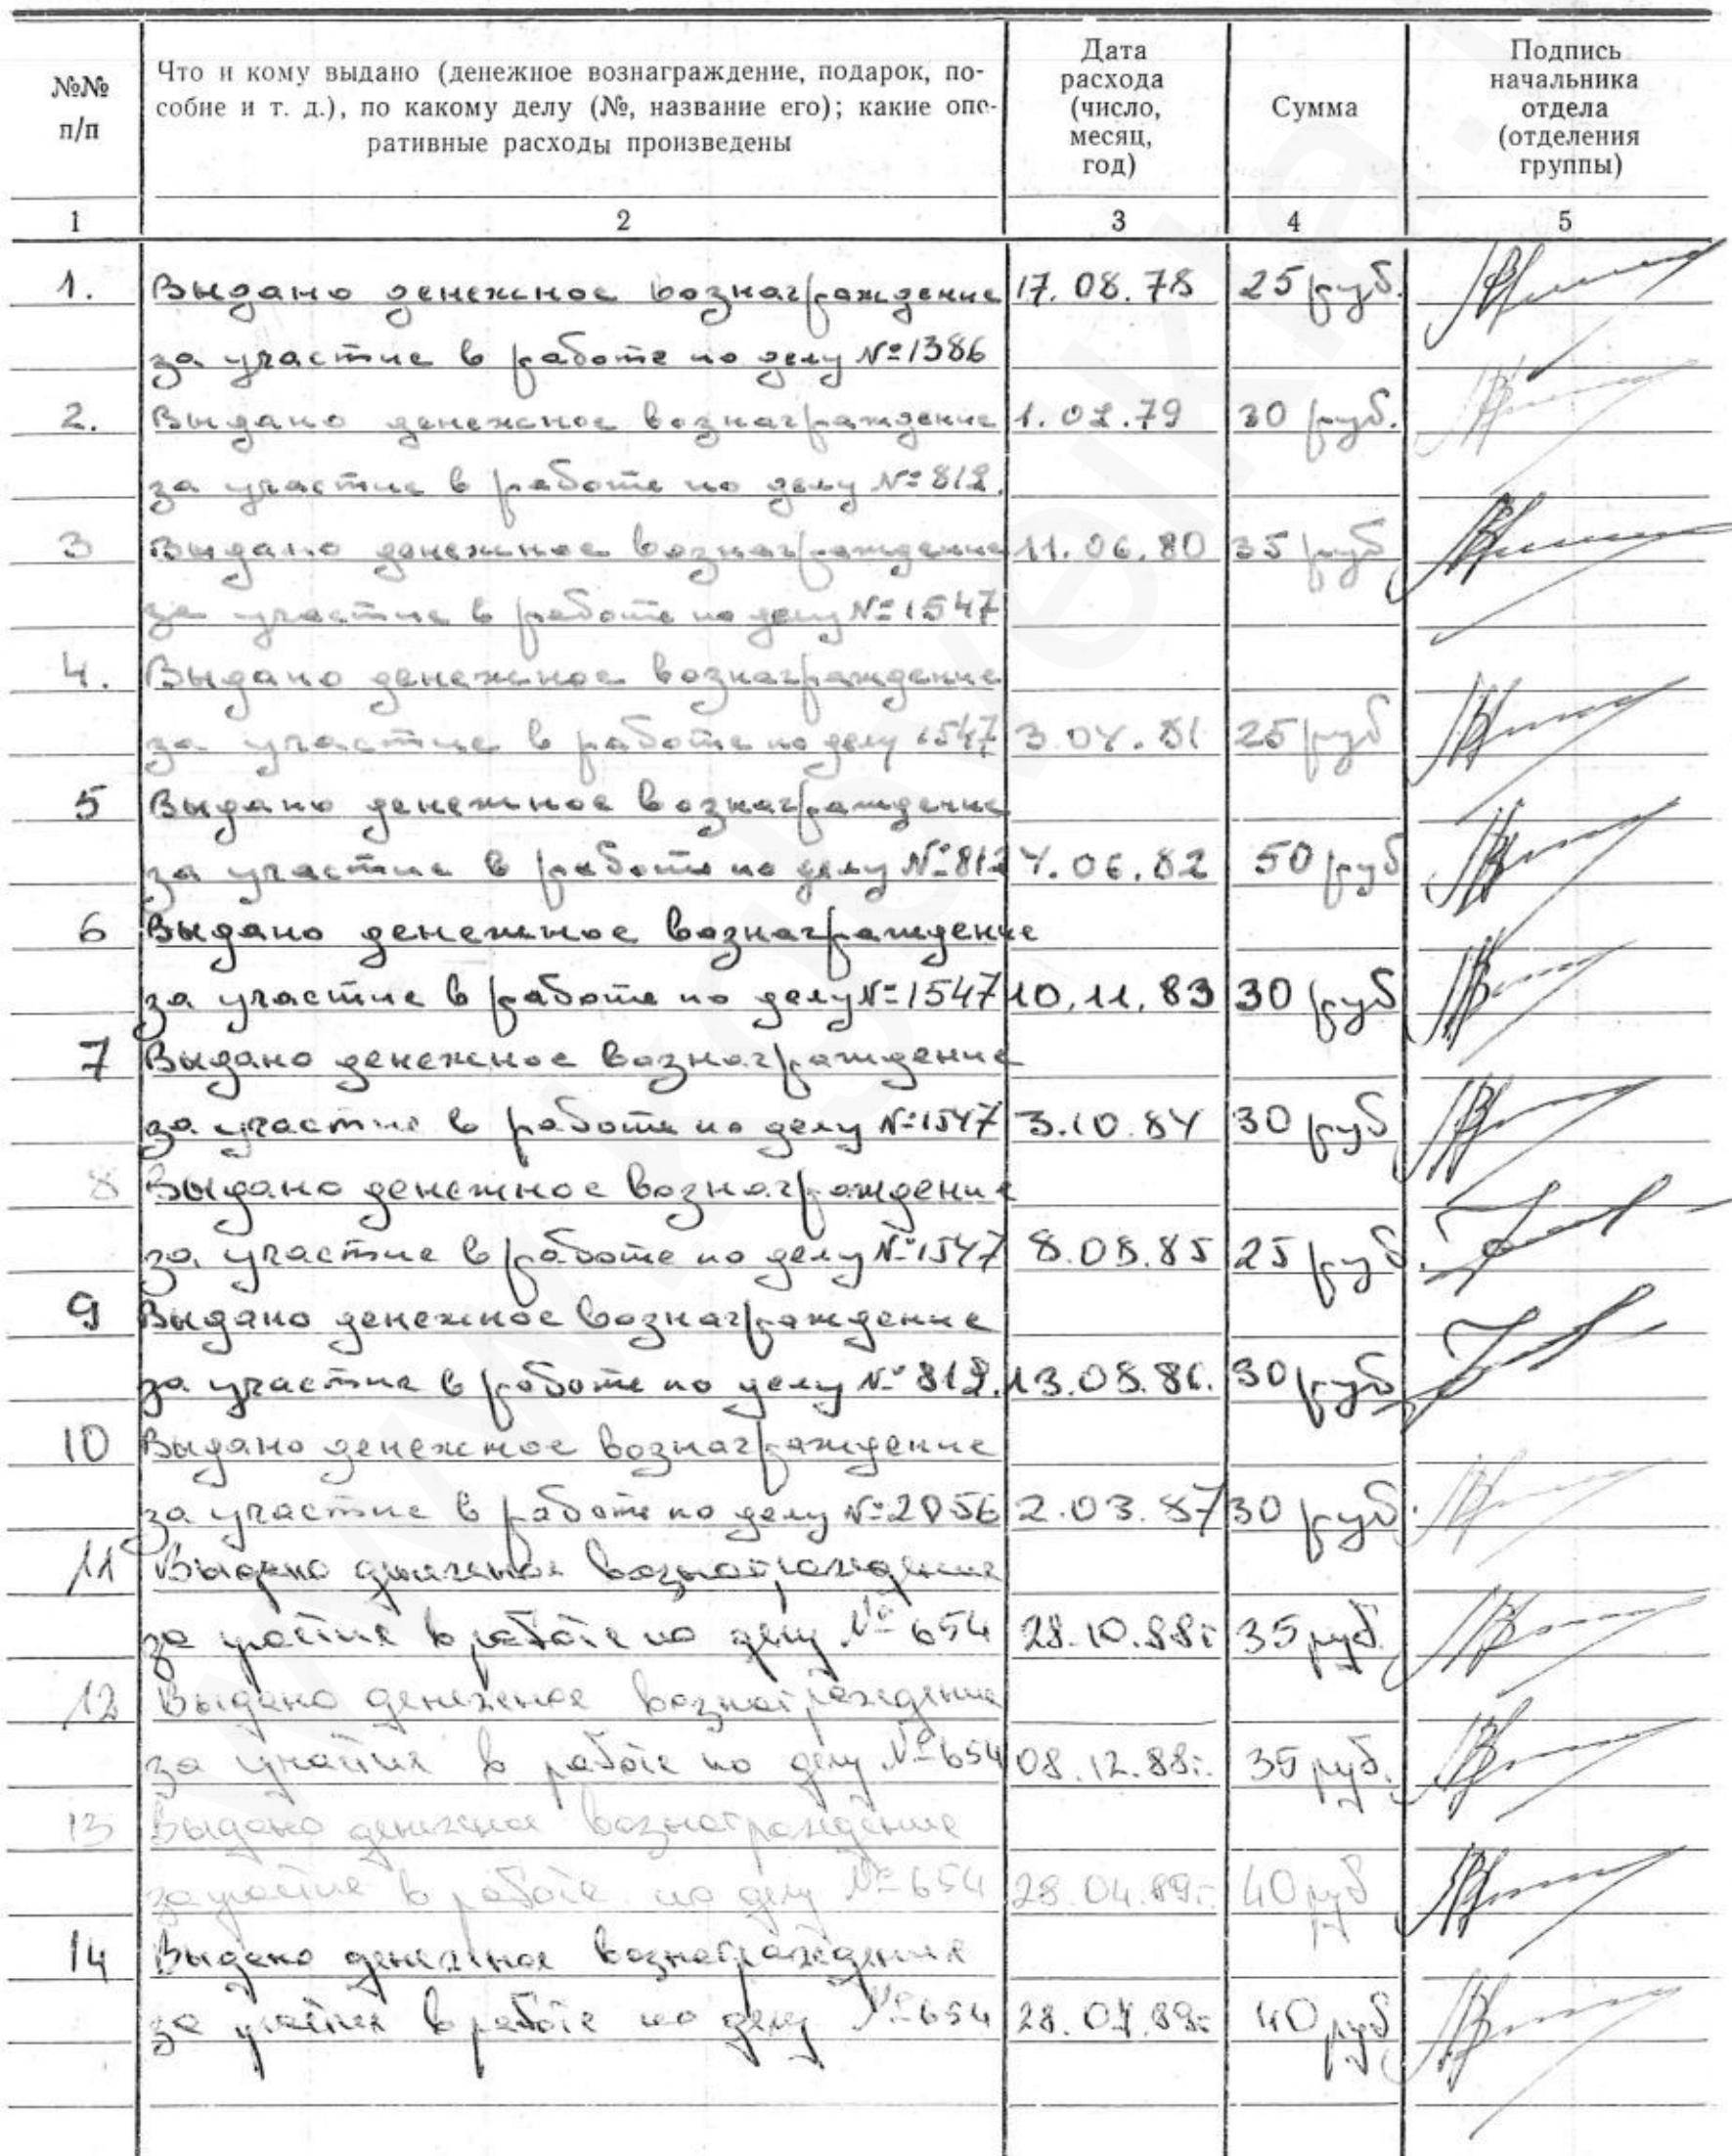 №№ п/п
Что и кому выдано (денежное вознаграждение, подарок, по-
собие и т. д.), по какому делу (№, название его); какие опе-
ративные расходы произведены
Дата
расхода
(число,
месяц,
год)
Сумма
Подпись
начальника
отдела
(отделения
группы)
1 2 3 4 5
1. Выдано денежное вознаграждение 17.08.78 25 руб.
за участие в работе по делу №1386
2. Выдано денежное вознаграждение 1.02.79 30 руб.
за участие в работе по делу №812.
3 Выдано денежное вознаграждение 11.06.80 35 руб
за участие в работе по делу №1547
4. Выдано денежное вознаграждение
за участие в работе по делу 1547 3.04.81 25 руб
5 Выдано денежное вознаграждение
за участие в работе по делу №812 4.06.82 50 руб
6 Выдано денежное вознаграждение
за участие в работе по делу №1547 10.11.83 30 руб
7 Выдано денежное вознаграждение
за участие в работе по делу №1547 3.10.84 30 руб
8 Выдано денежное вознаграждение
за участие в работе по делу №1547 8.08.85 25 руб.
9 Выдано денежное вознаграждение
за участие в работе по делу №812. 13.08.86. 30 руб
10 Выдано денежное вознаграждение
за участие в работе по делу №2056 2.03.87 30 руб.
11 Выдано денежное вознаграждение
за участие в работе по делу № 654 28.10.88г 35 руб.
12 Выдано денежное вознаграждение
за участие в работе по делу №654 08.12.88г. 35 руб.
13 Выдано денежное вознаграждение
за участие в работе по делу №654 28.04.89г. 40 руб
14 Выдано денежное вознаграждение
за участие в работе по делу №654 28.07.89г 40 руб